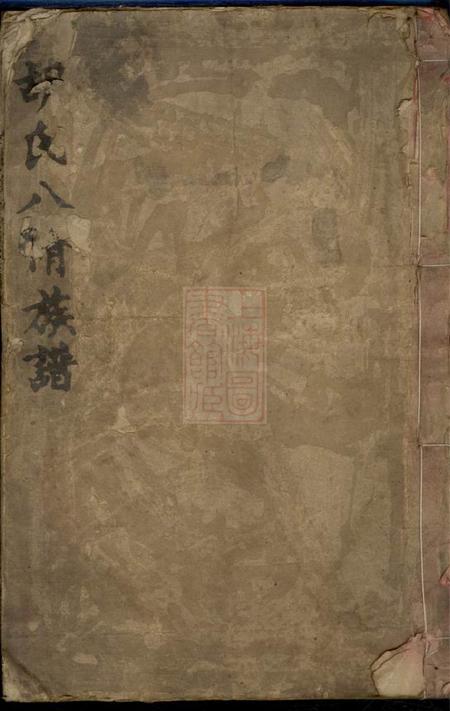 胡氏八脩族譜
上海圖
書館藏